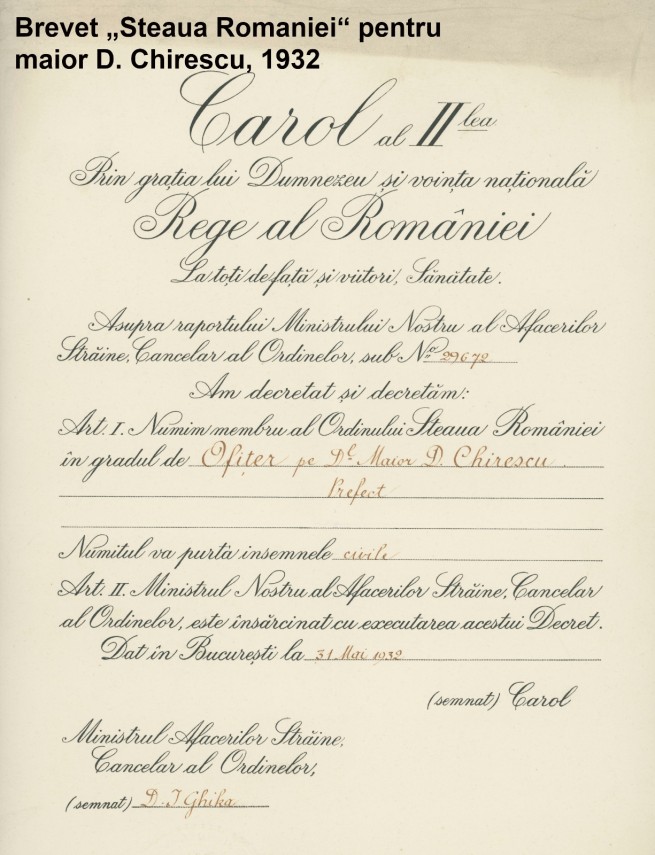 Brevet „Steaua Romaniei“ pentru
maior D. Chirescu, 1932
Carol al II lea
Prin grația lui Dumnezeu și voința națională
Rege al României
La toți de față și viitori, Sănătate.
Asupra raportului Ministrului Nostru al Afacerilor
Străine, Cancelar al Ordinelor, sub No 29672
Am decretat și decretăm:
Art. I. Numim membru al Ordinului Steaua României
în gradul de Ofițer pe Dl Maior D. Chirescu
Prefect
Numitul va purta insemnele civile
Art. II. Ministrul Nostru al Afacerilor Străine, Cancelar
al Ordinelor, este însărcinat cu executarea acestui Decret.
Dat în București la 31 Mai 1932
(semnat) Carol
Ministrul Afacerilor Străine,
Cancelar al Ordinelor,
(semnat) D. I. Ghika